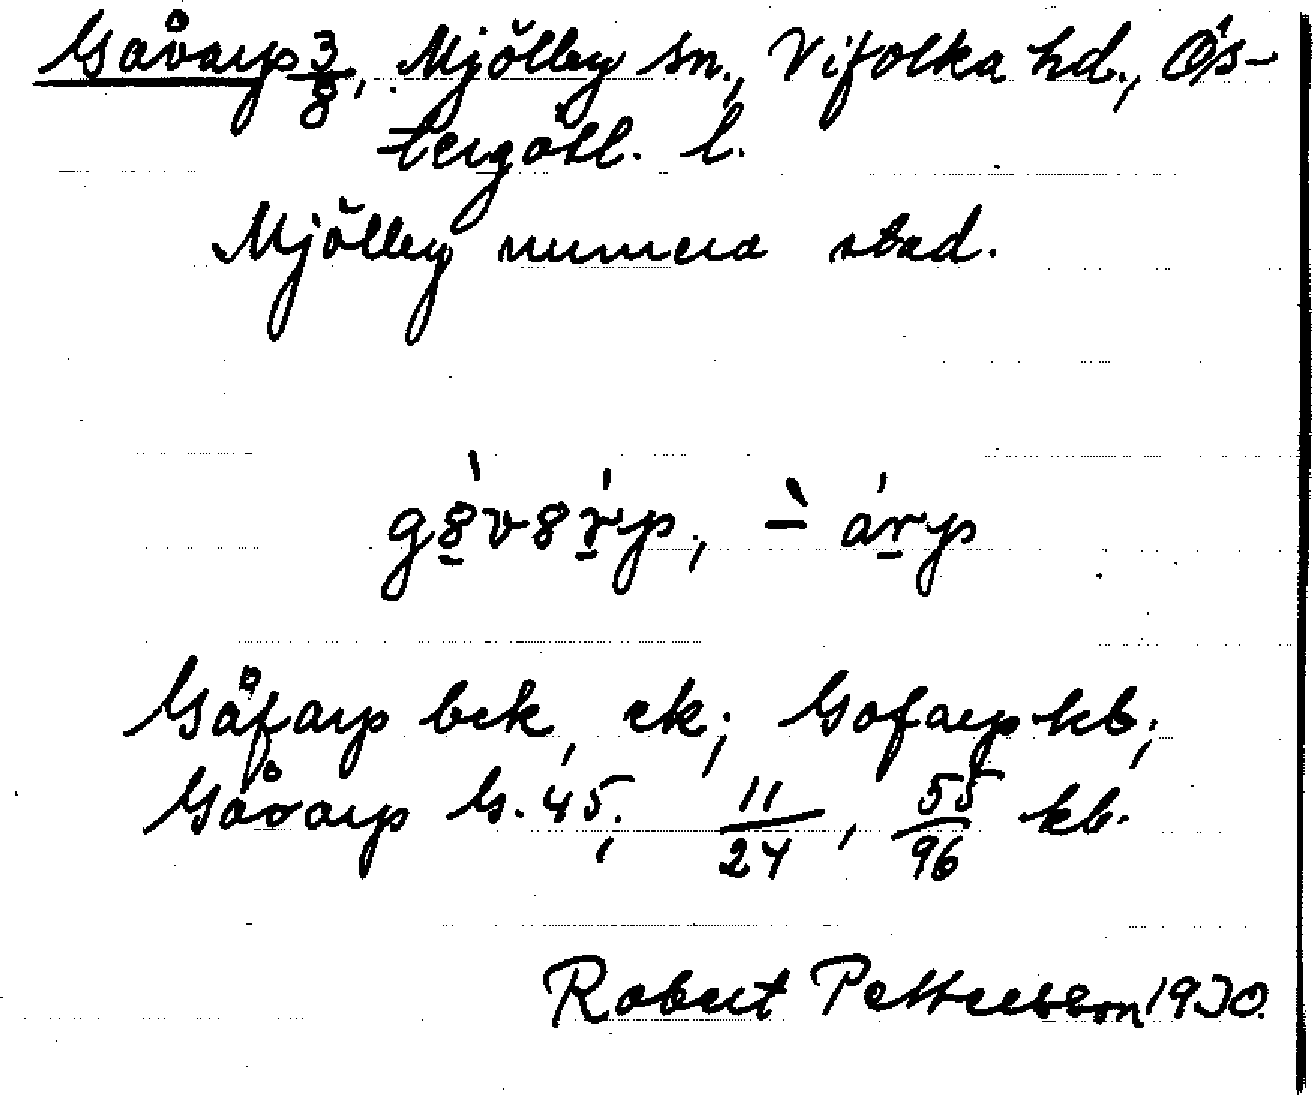 Gåvarp 3/8, Mjölby sn., Vifolka hd., Ös-
tergötl. l.
Mjölby numera stad.
g8v8rp, – arp
Gåfarp bck, ck; Gofarp kb;
Gåvarp G. 45; 11/24, 55/96 kb.
Robert Pettersson 1930.